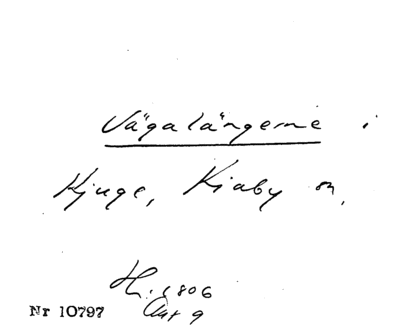 Vägalängerne i
Kjuge, Kiaby sn.
Hs. 1806
Akt 9
Nr 10797